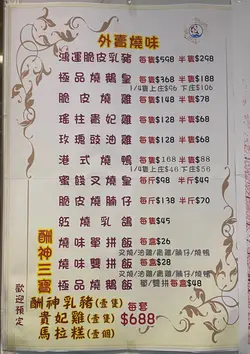 外賣燒味
鴻運脆皮乳豬 每隻$598 半隻$298
極品燒鵝皇 每隻$368 半隻$188
1/4隻上庄$96 下庄$106
脆皮燒雞 每隻$148 半隻$78
瑤柱貴妃雞 每隻$128 半隻$68
玫瑰豉油雞 每隻$128 半隻$68
港式燒鴨 每隻$168 半隻$88
1/4隻上庄$46 下庄$56
蜜餞叉燒皇 每斤$98 半斤$49
脆皮燒腩仔 每斤$138 半斤$70
燒乳鴿 每隻$45
燒味單拼飯 每盒$26
叉燒/油雞/鹿雞/腩仔/燒鴨
燒味雙拼飯 每盒$28
叉燒/油雞/鹿雞/腩仔/燒鴨
極品燒鵝飯 單/雙拼每盒$48
酬神三寶
酬神乳豬(壹隻)
貴妃雞(壹隻)
馬拉糕(壹個)
每套
$688
歡迎預定